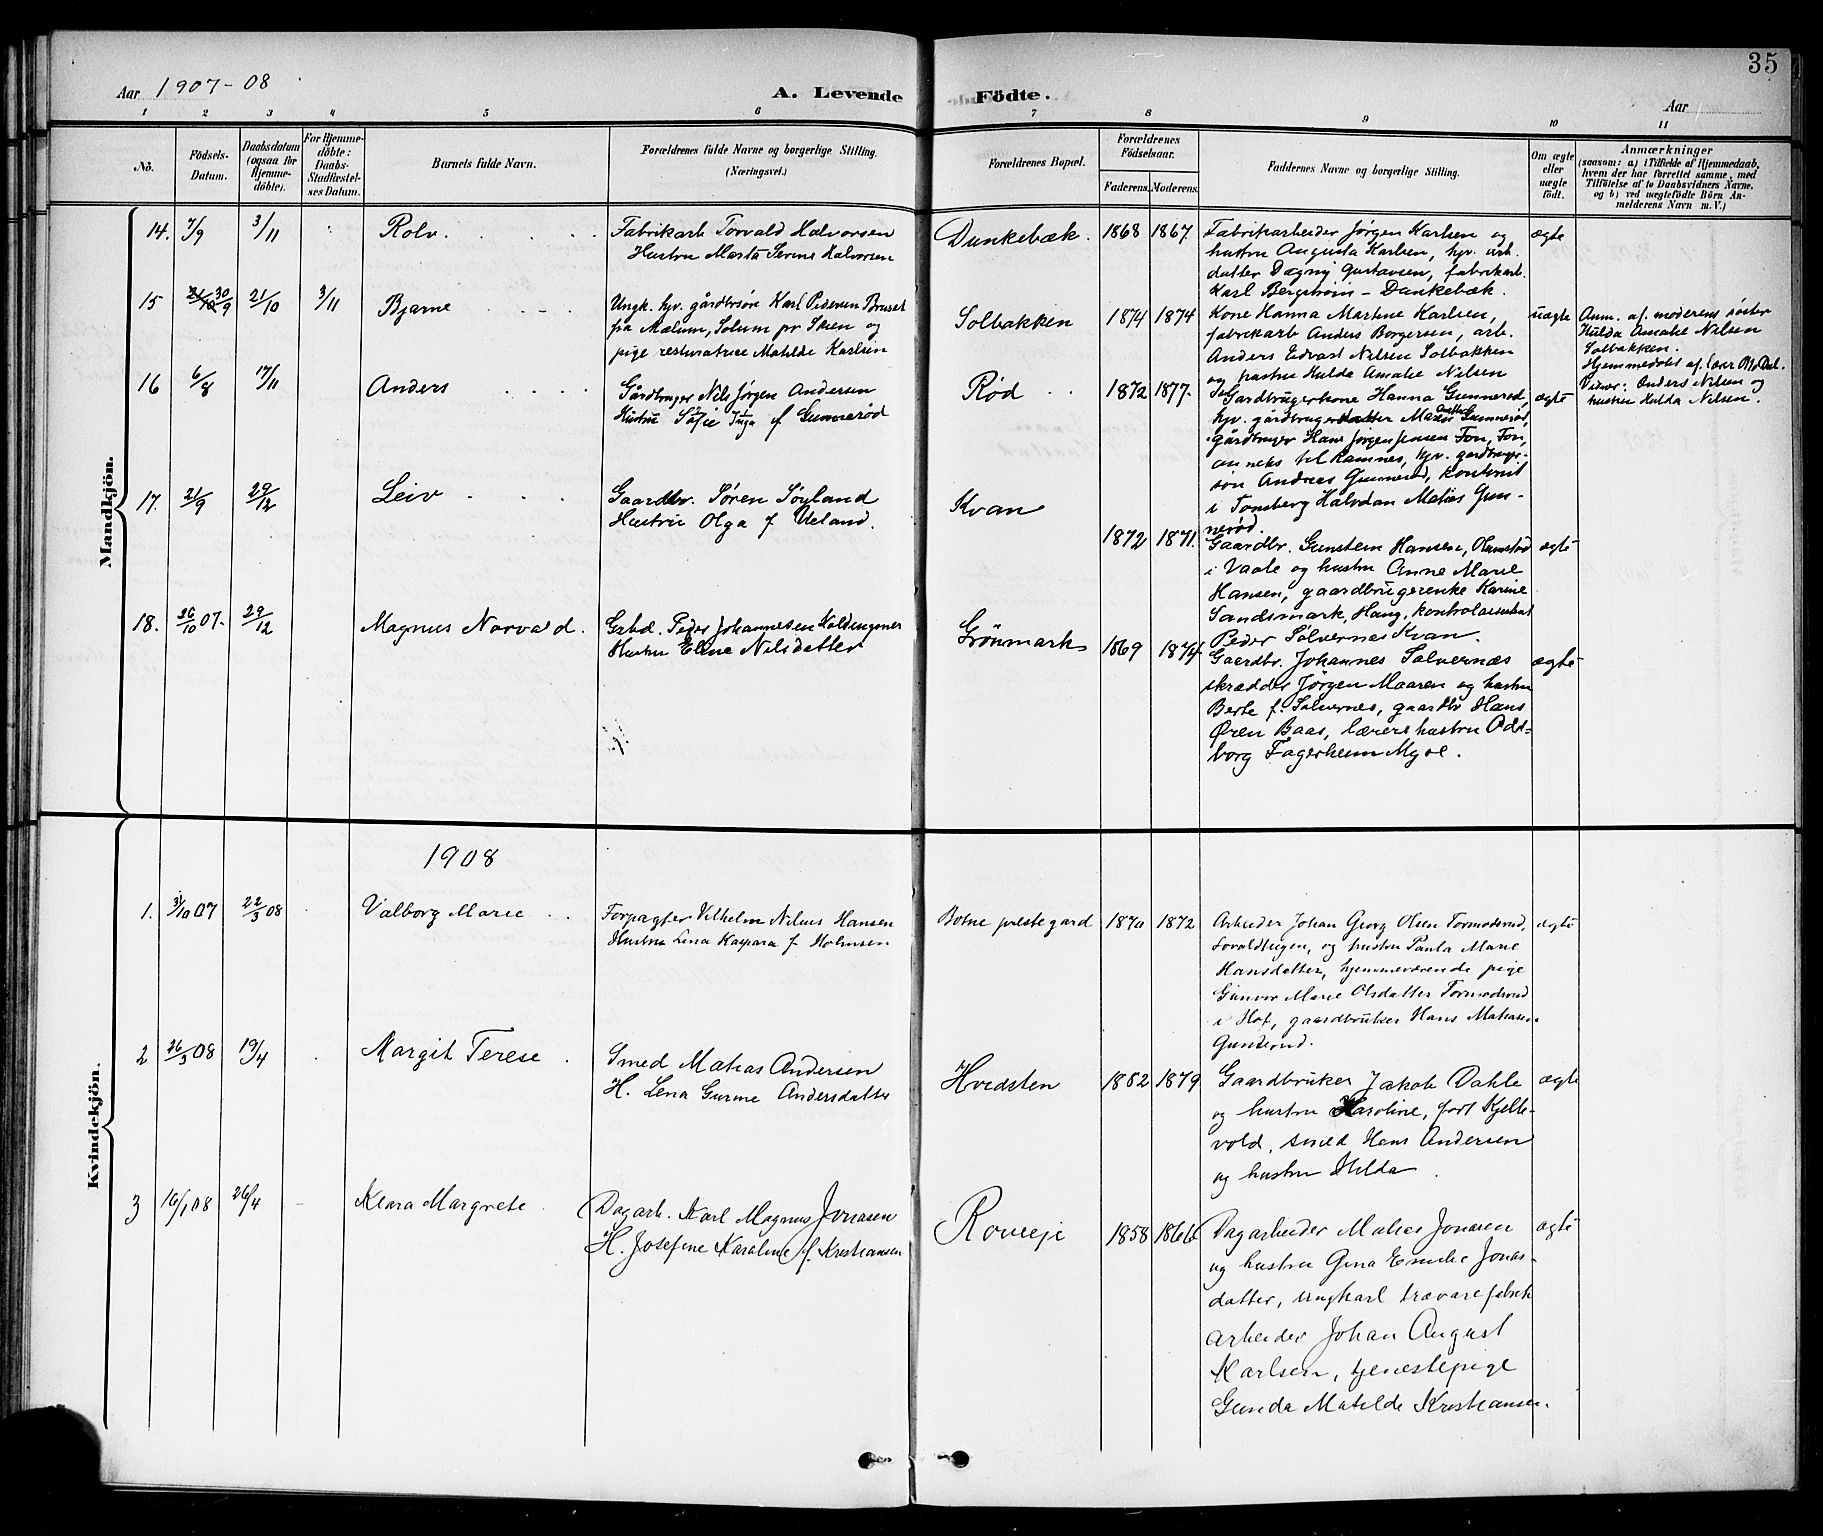 35
Aar 1907-08
A. Levende Födte.
Aar
1 2 3 4 5 6 7 8 9 10 11
No.
Födsels-
Datum.
Daabsdatum
(ogsaa for
Hjemme-
döbte).
For Hjemme-
döbte:
Daabs-
Stadfæstel-
ses Datum.
Barnets fulde Navn.
Forældrenes fulde Navne og borgerlige Stilling.
(Næringsvei.)
Forældrenes Bopæl.
Forældrenes
Födselsaar.
Faderens. Moderens.
Faddernes Navne og borgerlige Stilling.
Om ægte
eller
uægte
födt.
Anmærkninger
(saasom: a) i Tilfælde af Hjemmedaab,
hvem der har forrettet samme, med
Tilföielse af to Daabsvidners Navne,
og b) ved uægtefödte Börn An-
melderens Navn m. V.)
Mandkjön.
14. 7/9 3/11 Rolv
Fabrikarb Torvald Halvorsen
Hustru Marta Serine Halvorsen
Dunkebæk. 1868 1867
Fabrikarbeider Jørgen Karlsen og
hustru Augusta Karlsen, hjv. arb.
datter Dagny Gustavsen, fabrikarb.
Karl Bergstrøm - Dunkebæk.
ægte
15 21/10 30/9 21/10 3/11 Bjarne
Ungk. hjv. gårdbrsøn Karl Pedersen Bruset
fra Mælum, Solum pr Skien og
pige restuatrice Matilde Karlsen
Solbakken 1874 1874
Kone Hanna Martine Karlsen,
fabrikarb Anders Borgersen, arb.
Anders Edvart Nilsen Solbakken
og hustru Hulda Amalie Nilsen
uægte
Anm. af moderens søster
Hulda Amalie Nilsen
Solbakken.
Hjemmedøbt af
Vidner: Anders Nilsen og
hustru Hulda Nilsen.
16 6/8 17/11 Anders
Gårdbruger Nils Jørgen Andersen
Hustru Sofie Inga f Gunnerød
Rød 1872 1877.
Gardbrugerkone Hanna Gunnerød,
hjv. gårdbruger Gunnerød,
gårdbruger Hans Jørgen Jensen Fon, Fon,
anneks til Ramnes, hjv. gardbruger-
søn Andreas Gunnerød, kontorist
i Tønsberg Halvdan Matias Gun-
nerød.
ægte
17. 21/9 29/12 Leiv
Gaardbr. Søren Søyland
Hustru Olga f Ueland.
Kvan 1872 1871.
Gaardbr. Gunstein Hansen,
i Vaale og hustru Anne Marie
Hansen, gaardbrugerenke Karine
Sandsmark, Haug, kontrolassistent
Peder Solvernes Kvan.
ægte
18. 26/10 07. 29/12 Magnus Norvald.
Gbd. Peder Johannesen
Hustru Eline Nilsdatter
Grönmark 1869 1874
Gaardbr. Johannes Solvernæs
skrædder Jørgen Maaren og hustru
Berte f. Solvernes, gaardbr Hans
Øren Baas, lærers hustru Odd-
borg Fagerheim Myre.
ægte
Kvindekjön.
1908
1. 31/10 07 22/3 08 Valborg Marie
Forpagter Vilhelm Nilius Hansen
Hustru Lena Kaspara f. Holmsen
Botne prestegard 1870 1872
Arbeider Johan Georg Olsen Tormodsrud,
og hustru Paula Marie
Hansdatter, hjemmeværende pige
Gunvor Marie Olsdatter Tormodsrud
i Hof, gaardbruker Hans Matiasen
Gunderud.
ægte
2 26/3 08 19/4 Margit Terese
Smed Matias Andersen
H. Lena Gurine Andersdatter
Hvidsten 1882 1879
Gaardbruker Jakob Dahle
og hustru Karoline, født Kjelle-
vold, smed Hans Andersen
og hustru Hilda
ægte
3 16/1 08 26/4 Klara Margrete
Dagarb. Karl Magnus Jonasen
H. Josefine Karoline f. Kristiansen
Roveeje 1858 1866
Dagarbeider Matias Jonasen
og hustru Gina Emilie Jonas-
datter, ungkarl trævarefabrik
arbeider Johan August
Karlsen, tjenestepige
Gunda Matilde Kristiansen.
ægte